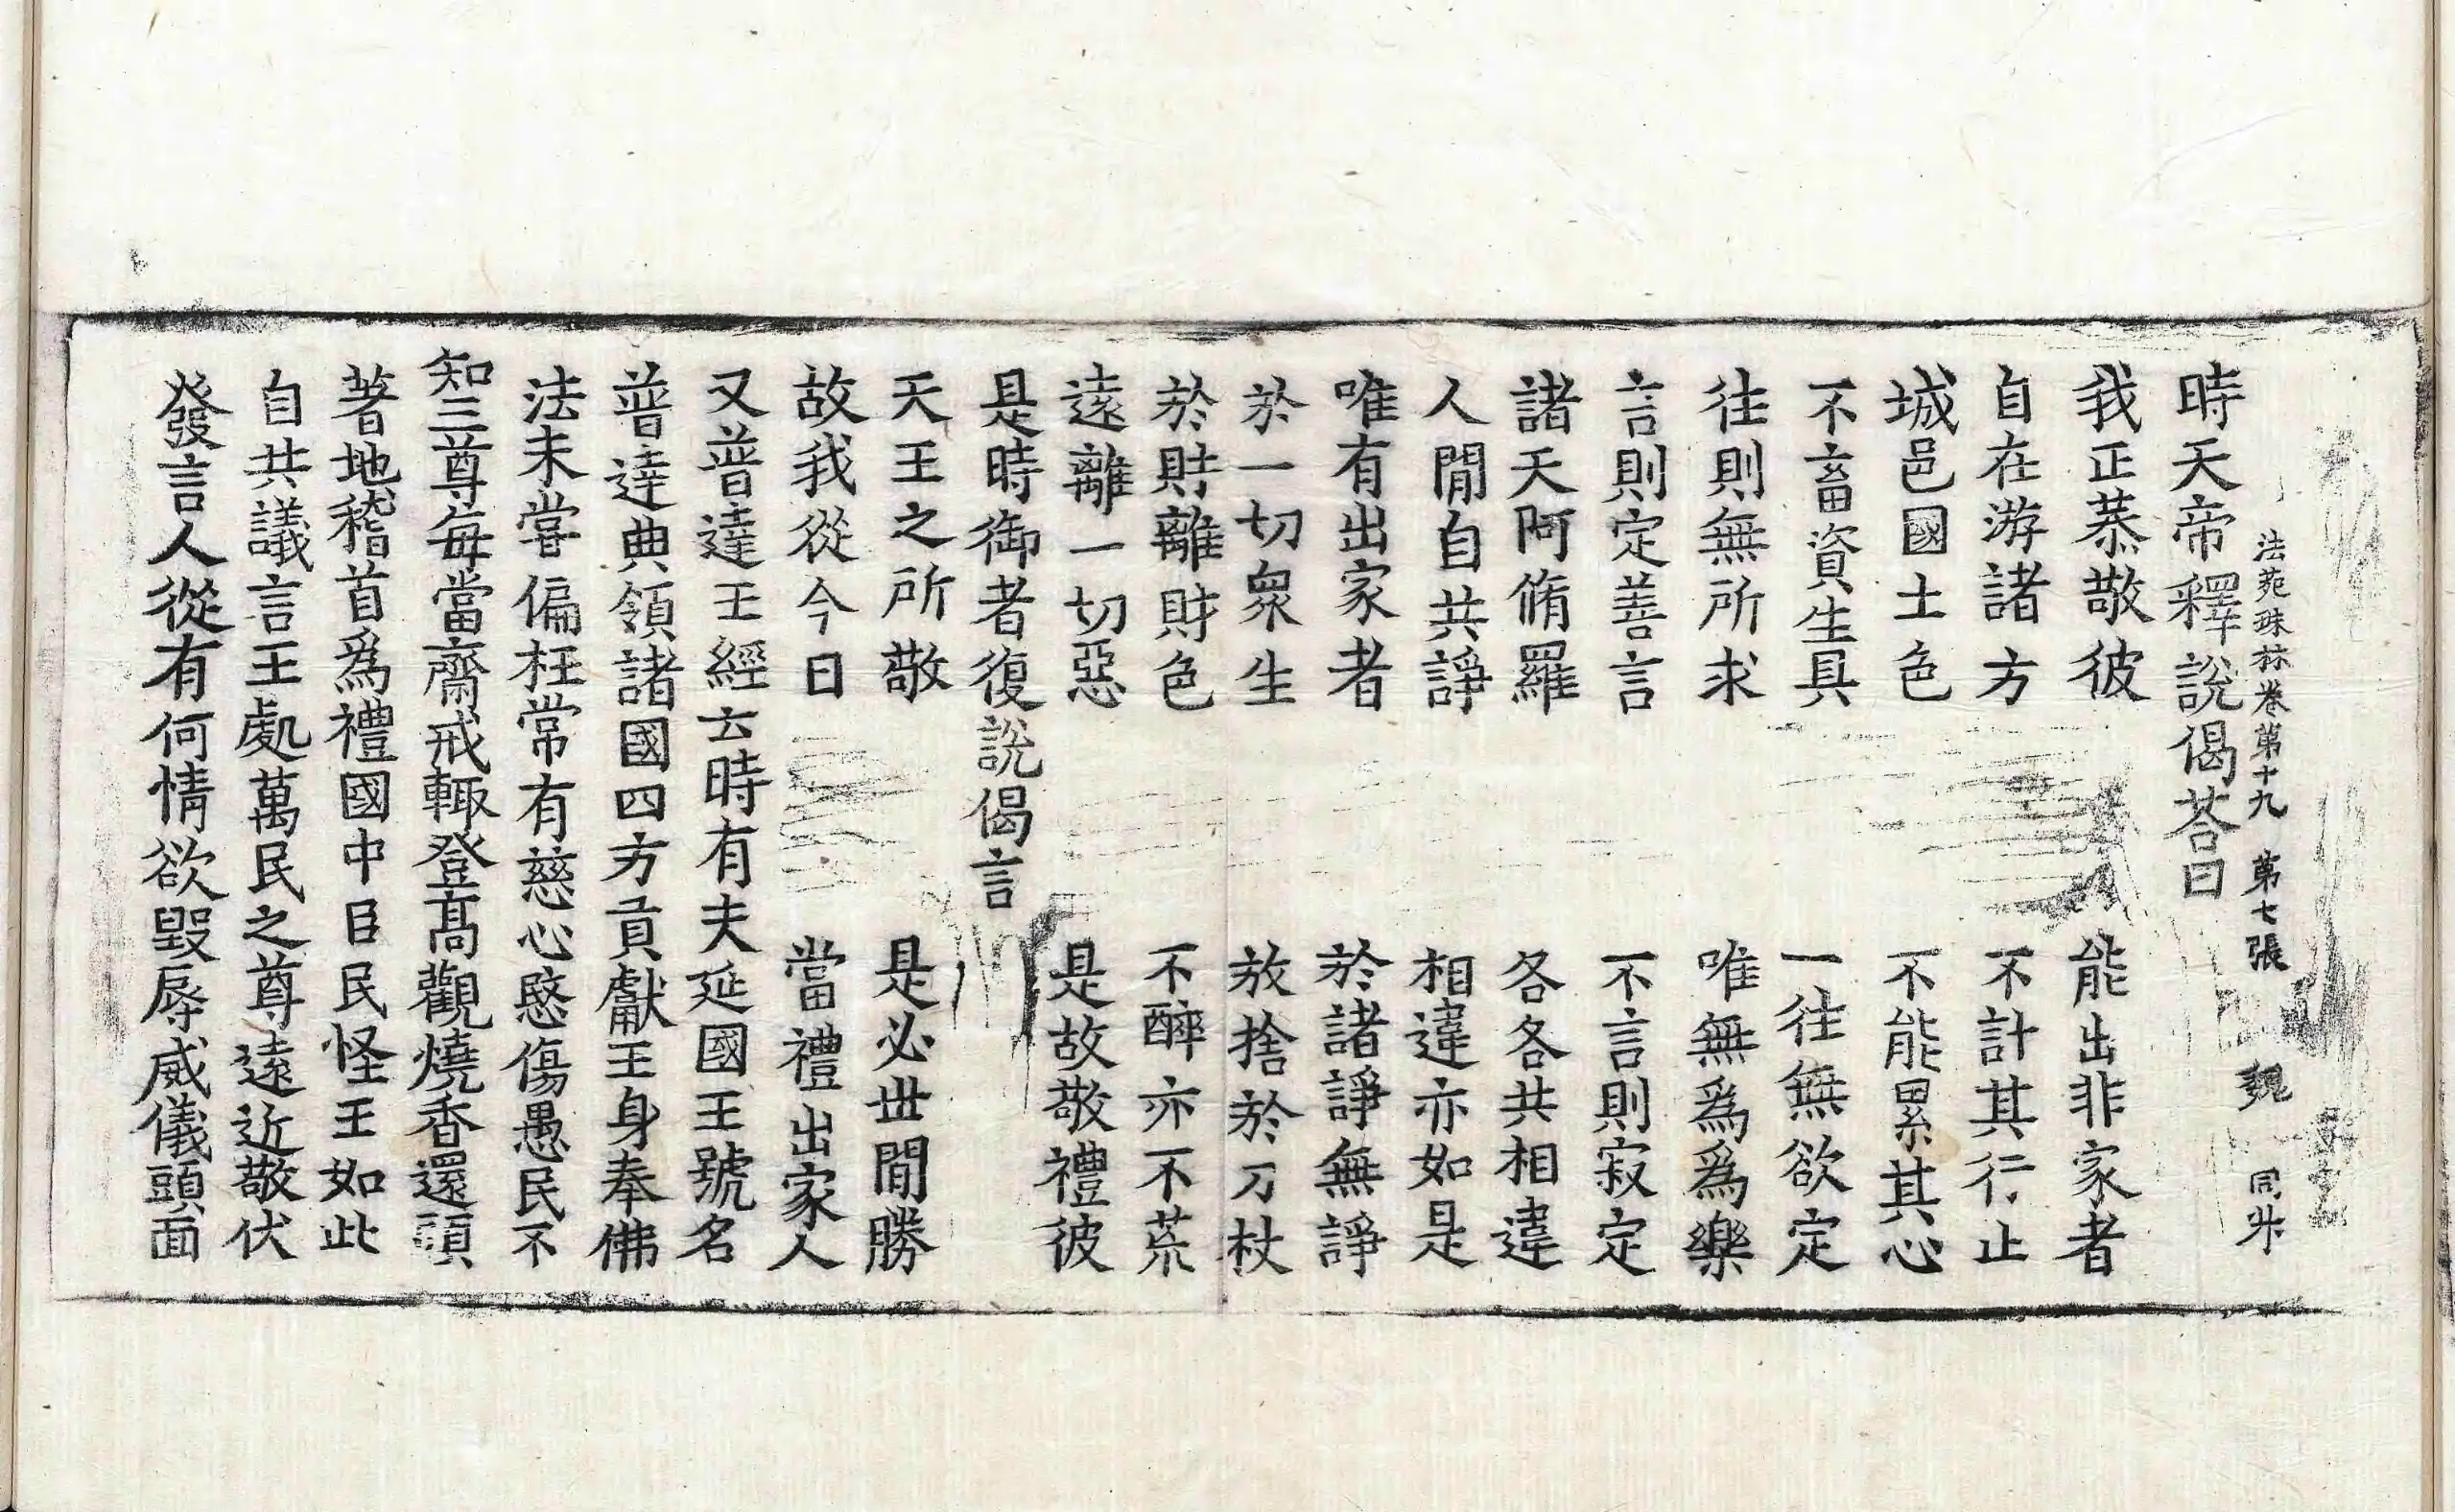 法苑珠林卷第十九 第七張 魏 同廾
時天帝釋說偈荅曰
我正恭敬彼 能出非家者
自在游諸方 不計其行止
城邑國土色 不能累其心
不畜資生具 一往無欲定
往則無所求 唯無為為樂
言則定善言 不言則寂定
諸天阿脩羅 各各共相違
人閒自共諍 相違亦如是
唯有出家者 於諸諍無諍
於一切眾生 放捨於刀杖
於財離財色 不醉亦不荒
遠離一切惡 是故敬禮彼
是時御者復說偈言
天王之所敬 是必世閒勝
故我從今日 當禮出家人
又普達王經云時有夫延國王號名
普達典領諸國四方貢獻王身奉佛
法未甞偏枉常有慈心愍傷愚民不
知三尊每當齋戒輙登高觀燒香還頭
著地稽首為禮國中臣民怪王如此
自共議言王處萬民之尊遠近敬伏
發言人從有何情欲毀辱威儀頭面